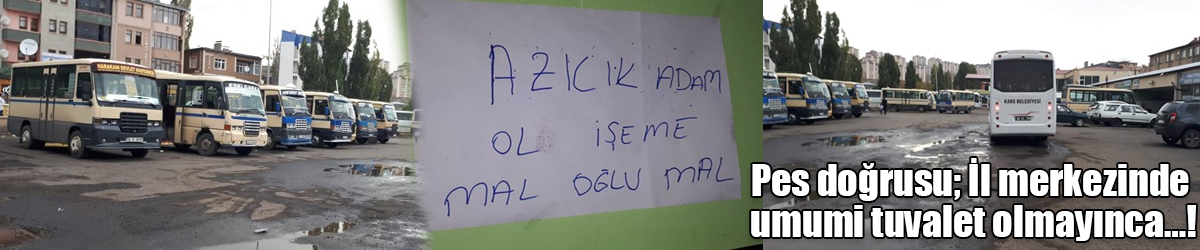 HARAKANİ DEVLET HASTANESİ
AZICIK ADAM
OL İŞEME
MAL OĞLU MAL
KARS BELEDİYESİ
Pes doğrusu; İl merkezinde
umumi tuvalet olmayınca...!